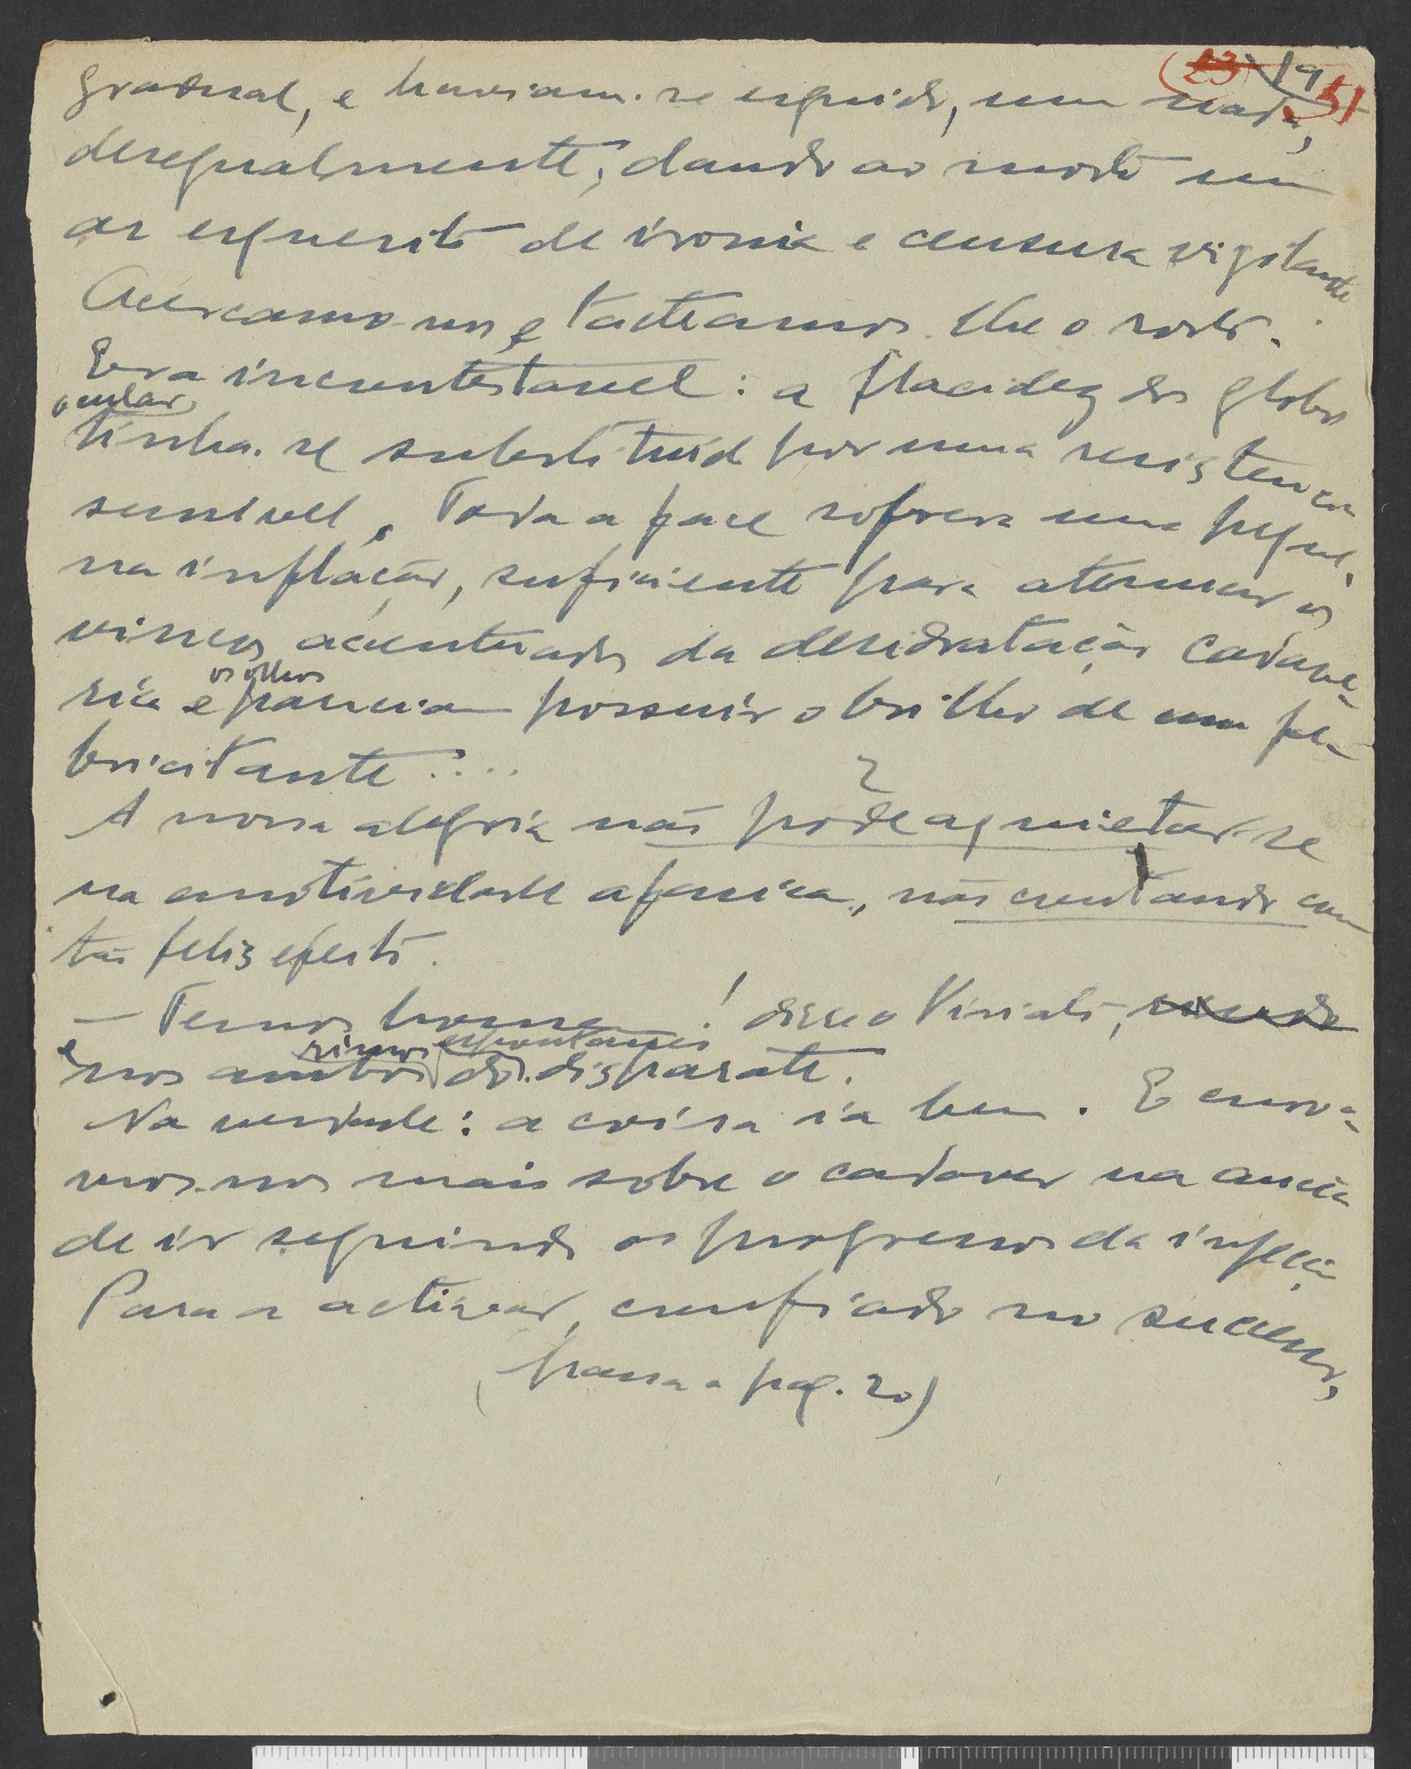 23 19 51
gradual, e haviam-se erguido, um nada,
desegualmente, dando ao morto um
ar esquesito de ironia e censura vigilante.
Acercamo-nos e tacteamos-lhe o rosto.
Era incontestavel: a flacidez dos globos
oculares
tinha-se substituido por uma resistencia
sensivel. Toda a face sofrera uma peque-
na inflação, suficiente para atenuar os
vincos acentuados da desidratação cadave-
os olhos
rica e pareciam possuir o brilho de um fe-
bricitante....
?
A nossa alegria não poude aquietar-se
na emotividade afonica, não contando com
tão feliz efeito.
— Temos homem! disse o Vivialdo,
rimos espontaneos
e nos ambos do disparate.
Na verdade: a coisa ia bem. E curva-
mos-nos mais sobre o cadaver na ancia
de ir seguindo os progressos da infleção
Para a activar, confiado no sucesso,
(passa a pag. 20)